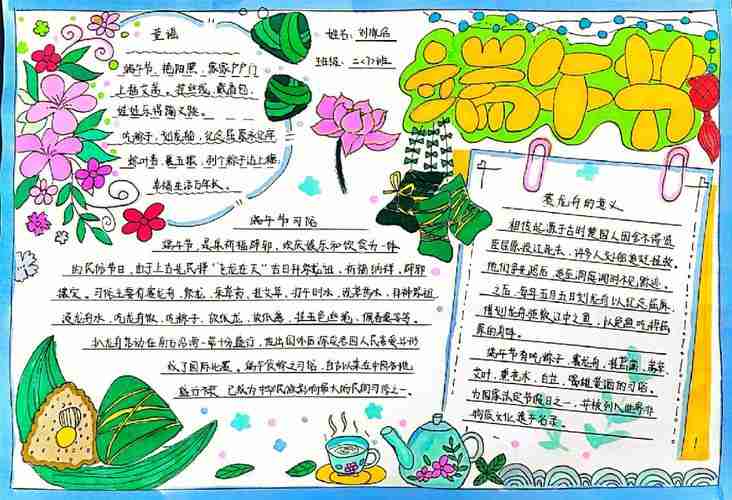 童谣
端午节，艳阳照，家家户户门
上插艾蒿。挂丝线，戴香包，
娃娃乐得蹦又跳。
吃粽子，划龙船，纪念屈原永记牢
粽叶香，裹五粮，剥个粽子沾上糖
幸福生活万年长。
姓名：刘
班级：二<7>班
端午节
端午节习俗
端午节，是集祈福辟邪、欢庆娱乐和饮食为一体
的民俗节日，由于上古先民择“飞龙在天”吉日拜祭龙祖、祈福纳祥、辟邪
攘灾。习俗主要有赛龙舟、祭龙、采草药、挂艾草、打午时水、洗草药水、拜神祭祖
浸龙舟水、吃龙舟饭、吃粽子、放纸龙、放纸鸢、拴五色丝线、佩香囊等等。
扒龙舟活动在南方沿海一带十分盛行，传出国外后深受各国人民喜爱并形
成了国际比赛。端午食粽之习俗，自古以来在中国各地
盛行不衰，已成为中华民族影响最大的民间习俗之一。
赛龙舟的意义
相传起源于古时楚国人因舍不得贤
臣屈原投江死去，许多人划船追赶拯救。
他们争先恐后，追至洞庭湖时不见踪迹。
之后，每年五月五日划龙舟以纪念屈原。
借划龙舟驱散江中之鱼，以免鱼吃掉屈
原的身体。
端午节有吃粽子，赛龙舟，挂菖蒲、蒿草、
艾叶，薰苍术、白芷，喝雄黄酒的习俗。
为国家法定节假日之一，并被列入世界非
物质文化遗产名录。